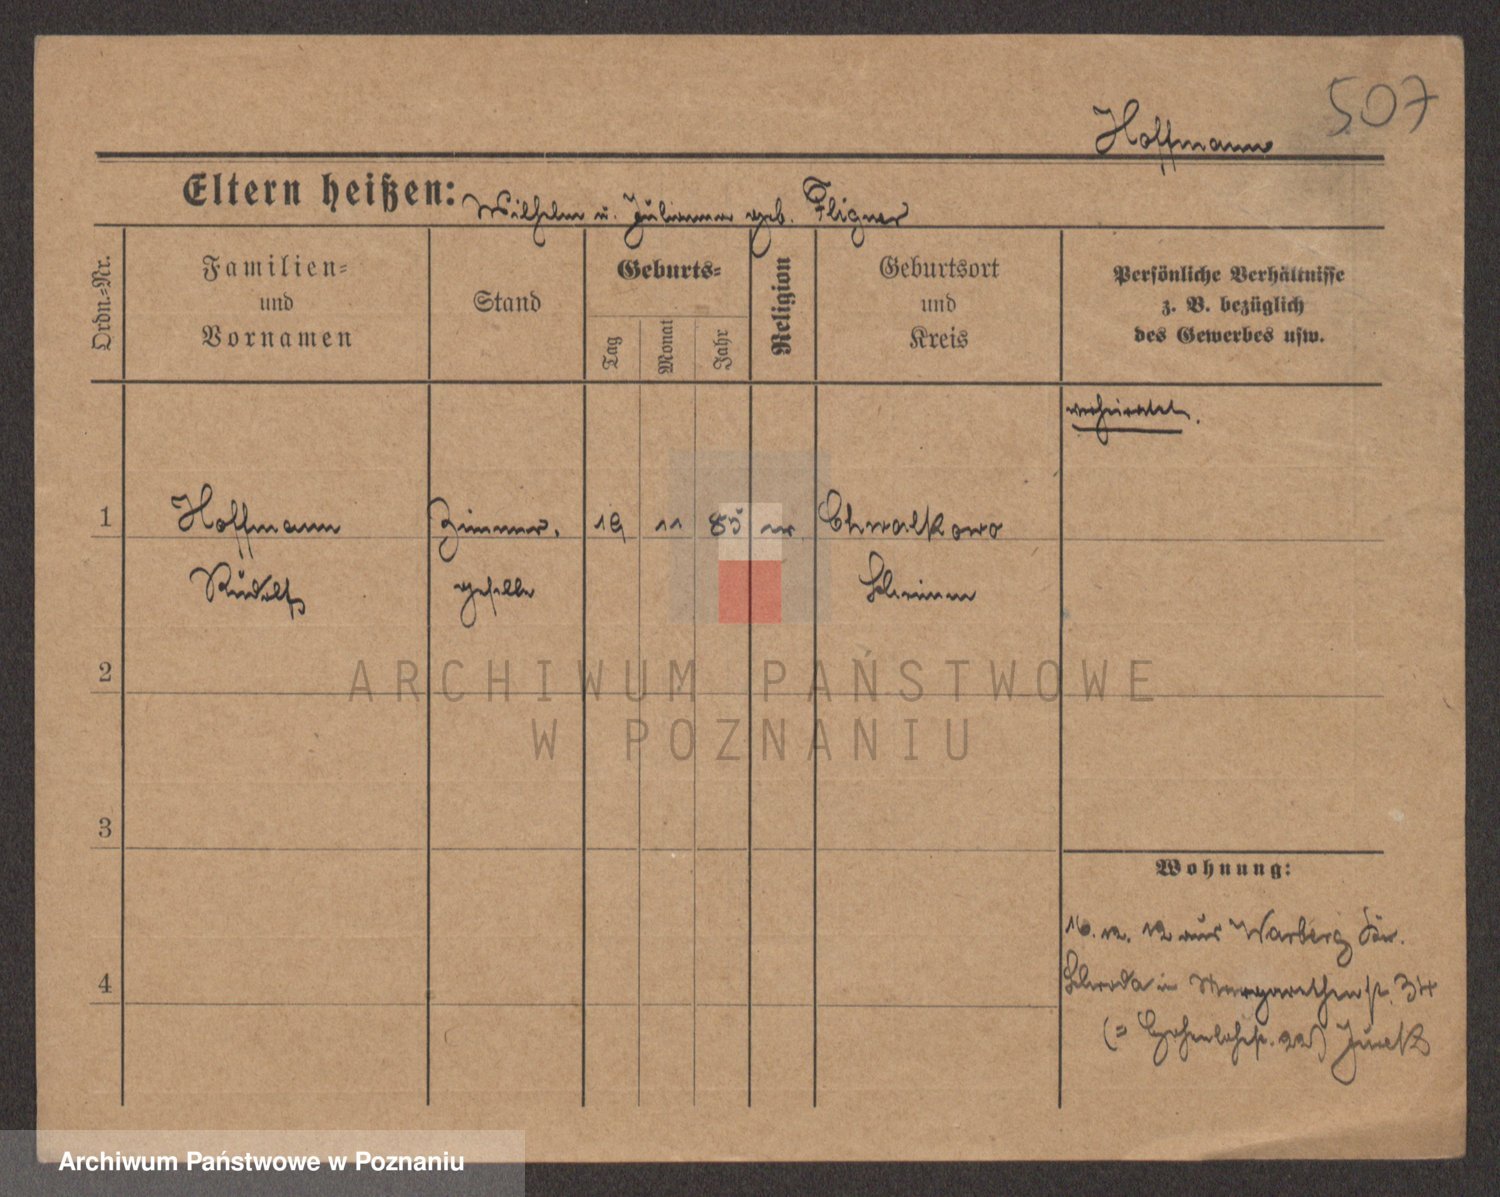 507
Hoffmann
Eltern heißen: Wilhelm u. Julianna geb. Fligner
Ordn.-Nr.
Familien-
und
Vornamen
Stand
Geburts-
Tag
Monat
Jahr
Religion
Geburtsort
und
Kreis
Persönliche Verhältnisse
z. B. bezüglich
des Gewerbes usw.
verheiratet.
1 Hoffmann Zimmer- 19 11 85 Chwalkowo
Rudolf geselle Schrimm
2
3
4
Wohnung:
16. 12. 12 aus Warberg Kr.
Schroda in Margarethenstr. 34
(= Hohenlohestr. 22)
ARCHIWUM PAŃSTWOWE
W POZNANIU
Archiwum Państwowe w Poznaniu